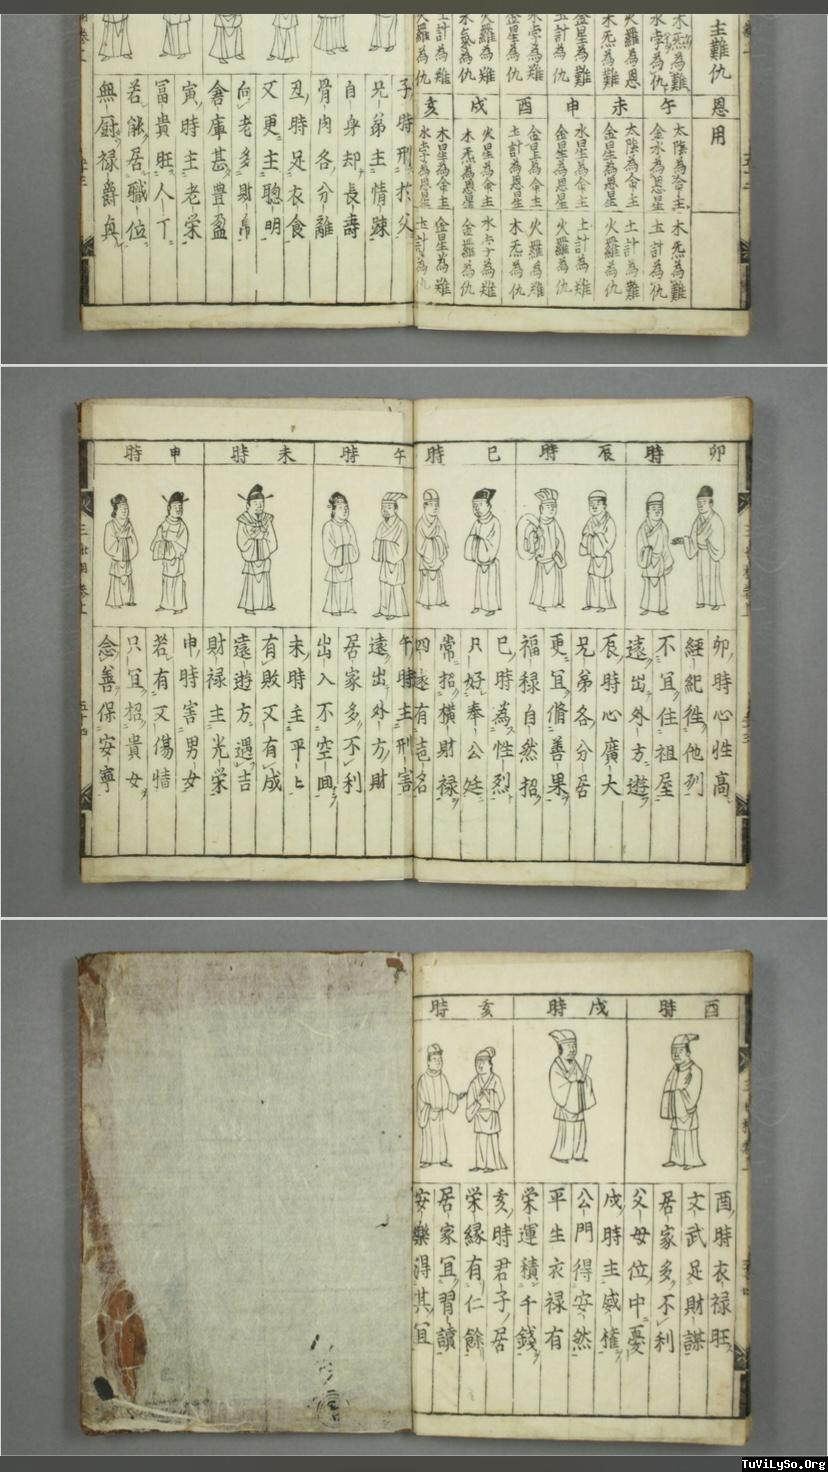 主難仇
恩
用
午
未
申
酉
戌
亥
太陰為命主
金水為恩星
木炁為難
土計為仇
太陽為命主
金星為恩星
土計為難
火羅為仇
水星為命主
金星為恩星
土計為難
火羅為仇
金星為命主
土計為恩星
火羅為難
木炁為仇
火星為命主
木炁為恩星
水孛為难
金羅為仇
木星為命主
水孛為恩星
金星為难
土計為仇
子時刑於父
兄弟主情踈
自身却長壽
骨肉各分離
丑時足衣食
又更主聰明
向老多財帛
倉庫甚豊盈
寅時主老栄
冨貴旺人丁
若能居職位
無厨禄爵真
卯時
辰時
巳時
午時
未時
申時
卯時心性高
經紀徃他列
不宜住祖屋
遠出外方遊
辰時心廣大
兄弟各分居
更宜脩善果
福禄自然招
巳時為性烈
只好奉公廷
常招横財禄
四遠有吉名
午時主刑害
遠出外方財
居家多不利
出入不空囬
未時主平上
有敗又有成
遠遊方遇吉
財禄主光栄
申時害男女
若有又傷情
只宜招貴女
念善保安寧
五十四
酉時
戌時
亥時
酉時衣禄旺
文武足財謀
居家多不利
父母位中憂
戌時主威權
公門得安然
平生衣禄有
栄運積千錢
亥時君子居
栄縁有仁餘
居家宜習讀
安樂得其宜
TuViLySo.Org